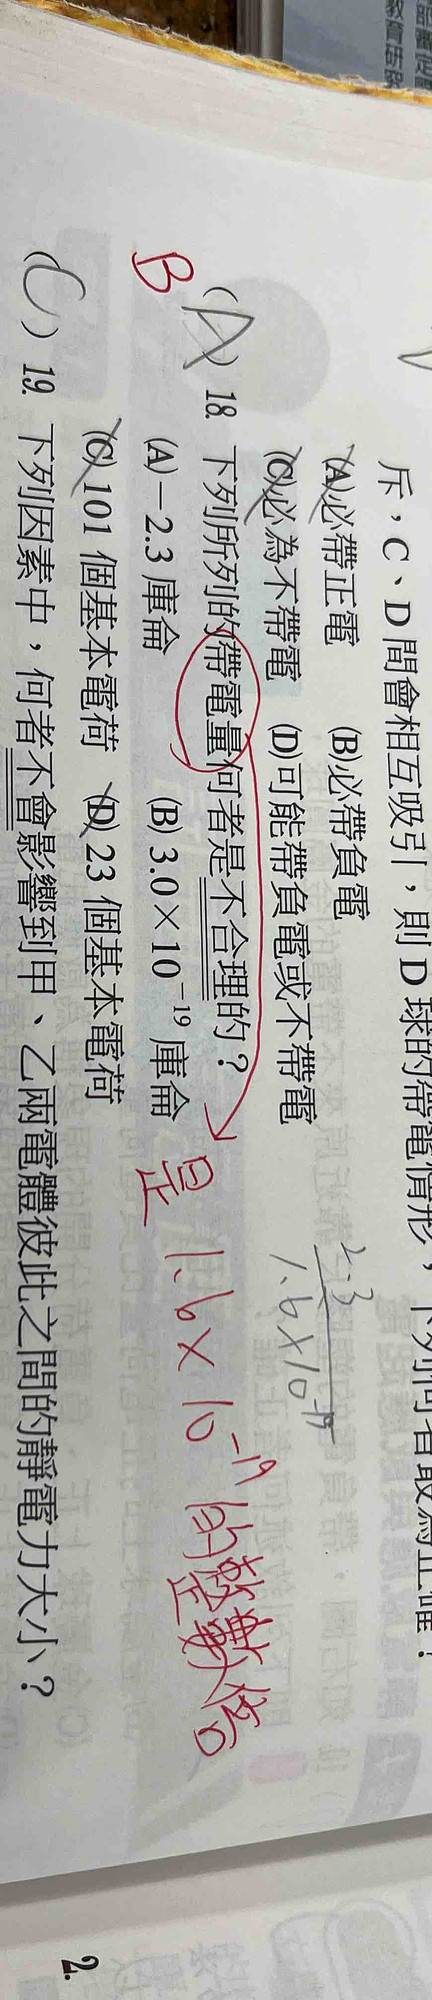 斥，C、D間會相互吸引，則D球的帶電情形，下列何者最為正確？
(A)必帶正電 (B)必帶負電
(C)必為不帶電 (D)可能帶負電或不帶電
2.3
1.6×10⁻¹⁹
B
(A) 18. 下列所列的帶電量何者是不合理的？
(A)－2.3 庫侖 (B) 3.0×10⁻¹⁹ 庫侖
是 1.6×10⁻¹⁹ 的整數倍
(C) 101 個基本電荷 (D) 23 個基本電荷
(C) 19. 下列因素中，何者不會影響到甲、乙兩電體彼此之間的靜電力大小？
2.